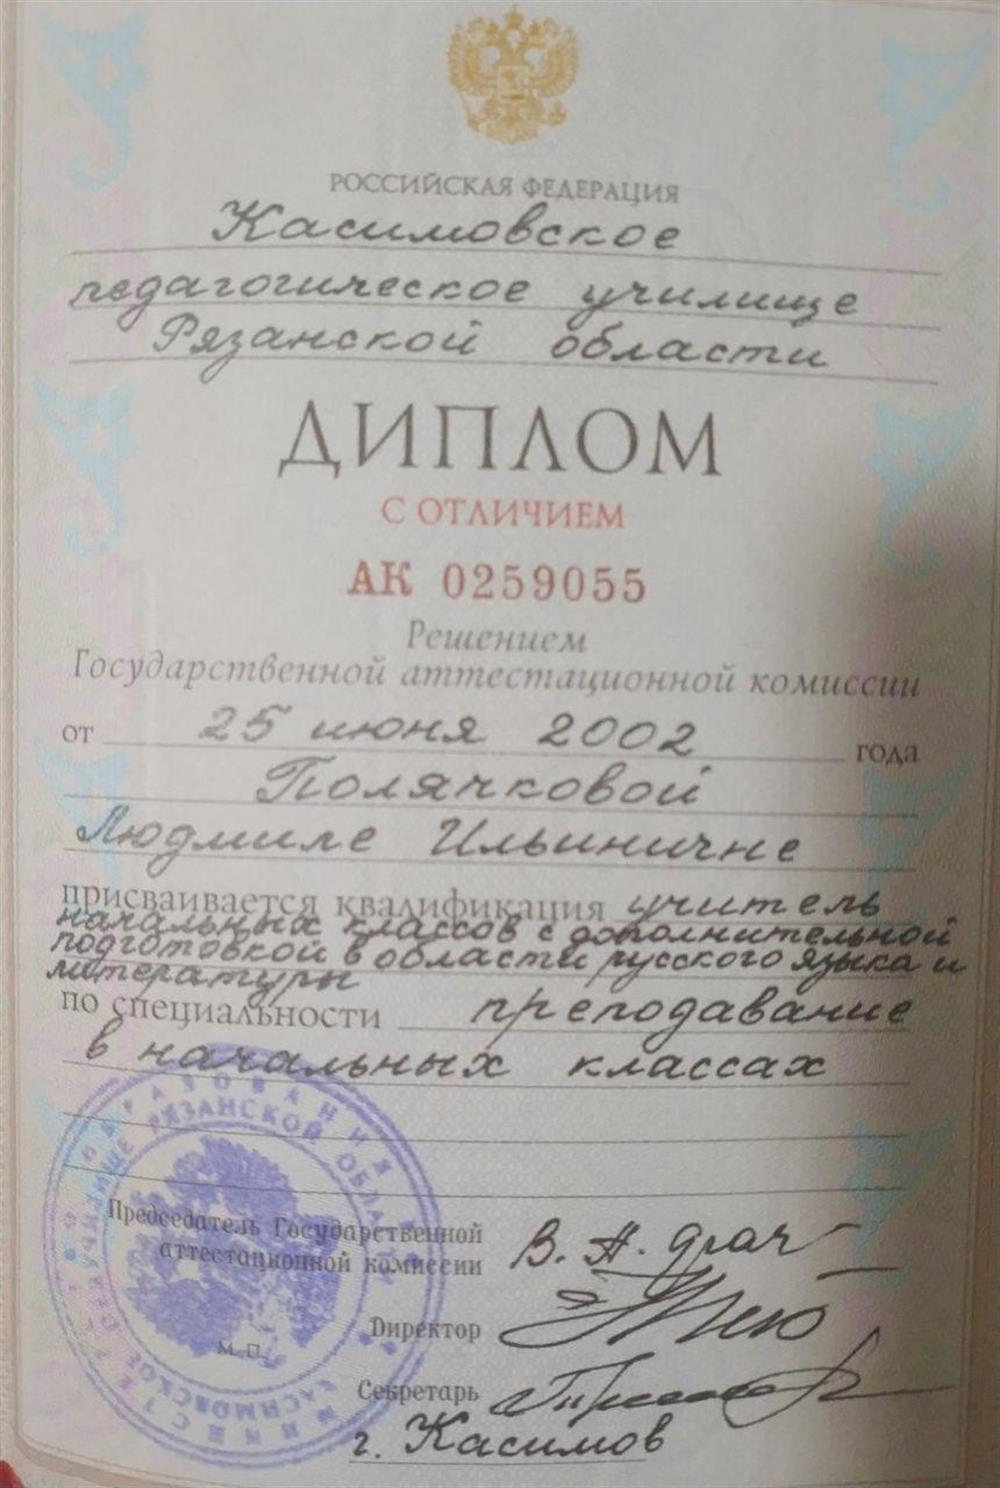 РОССИЙСКАЯ ФЕДЕРАЦИЯ
Касимовское
педагогическое училище
Рязанской области
ДИПЛОМ
С ОТЛИЧИЕМ
АК 0259055
Решением
Государственной аттестационной комиссии
от 25 июня 2002 года
Полячковой
Людмиле Ильиничне
присваивается квалификация учитель
начальных классов с дополнительной
подготовкой в области русского языка и
литературы
по специальности преподавание
в начальных классах
ОБРАЗОВАНИЯ
УЧИЛИЩЕ РЯЗАНСКОЙ ОБЛАСТИ
КАСИМОВСКОЕ
Председатель Государственной
аттестационной комиссии В. А. Драч
Директор
М. П.
Секретарь
г. Касимов